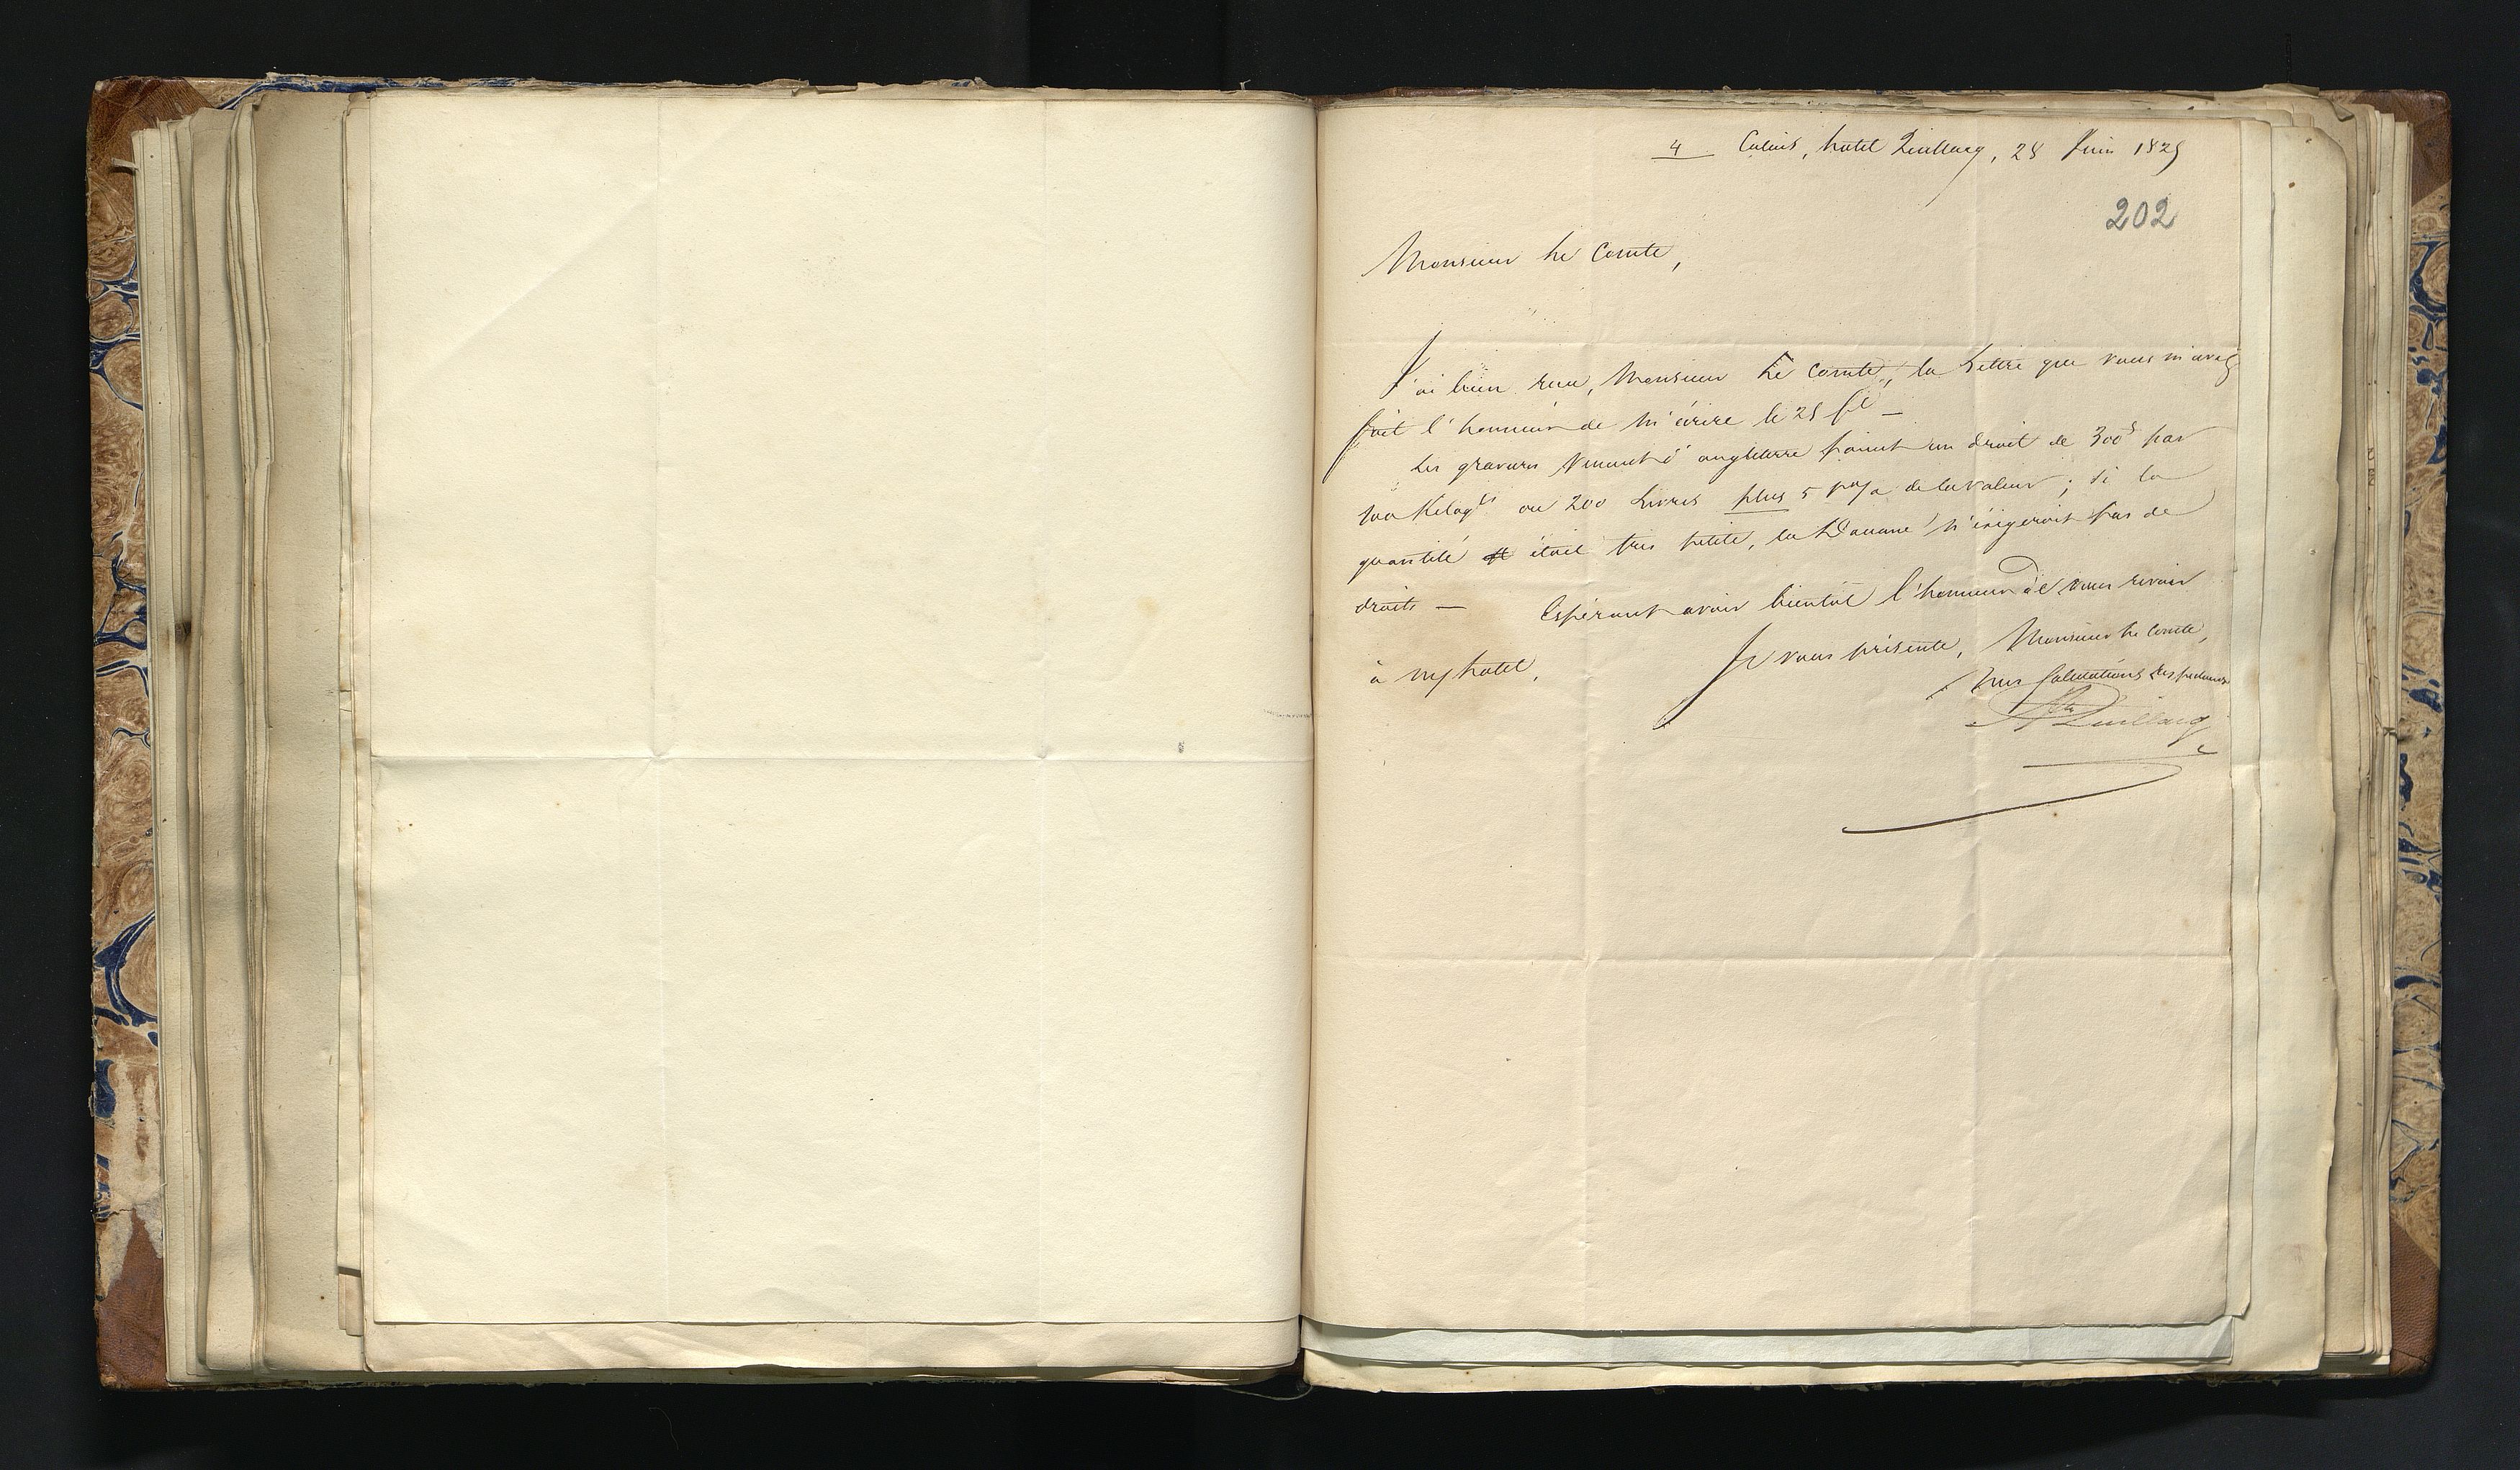 4 Calais, hotel Quillacq, 28 Juin 182
202
Monsieur Le Comte,
J'ai bien reçu, Monsieur Le Comte, la Lettre que vous m'avez
fait l'honneur de m'écrire le 25
Les gravures venant d'angleterre paient un droit de 300 par
100 Kilog ou 200 Livres plus 5 p% de la valeur ; si la
quantité était tres petite, la Douane n'éxigeroit pas de
droits — Espérant avoir bientôt l'honneur de vous revoir
à my hotel,
Je vous présente, Monsieur Le Comte,
mes Salutations respectueuses
Quillacq